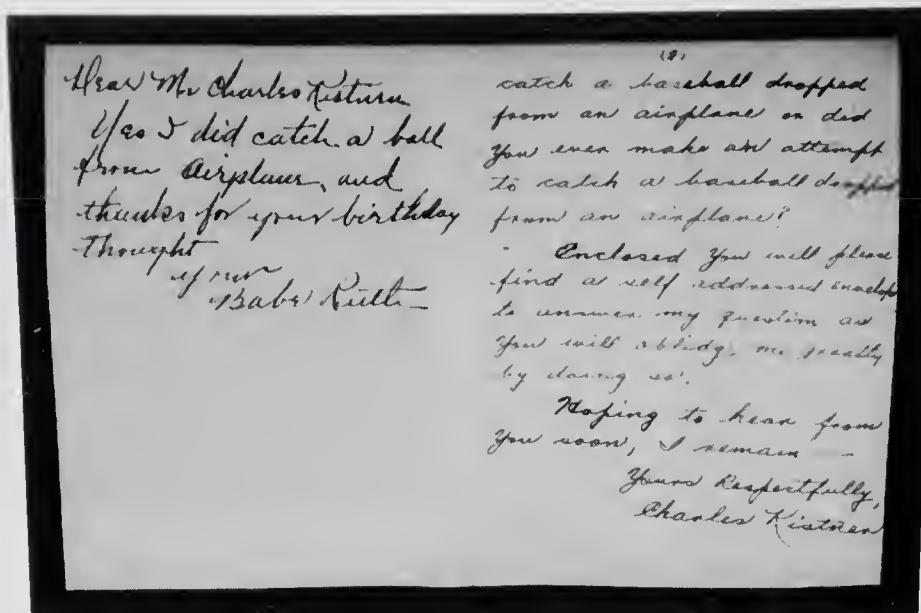 Dear Mr Charles Kisturn
Yes I did catch a ball
from Airplane, and
thanks for your birthday
thought
your
Babe Ruth
(2)
catch a baseball dropped
from an airplane or did
you ever make an attempt
to catch a baseball dropped
from an airplane?
Enclosed you will please
find a self addressed envelope
to answer my question as
you will oblidg. me greatly
by doing so.
Hoping to hear from
you soon, I remain —
Yours Respectfully,
Charles Kistner